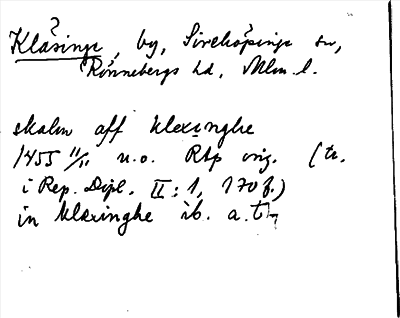 Kläsinge, by, Sireköpinge sn,
Rönnebergs hd, Mlm. l.
skalm aff klexinghe
1455 11/11 u.o. Rtp orig. (tr.
i Rep. Dipl. II:1, 170 f.)
in klæxinghe ib. a.t.